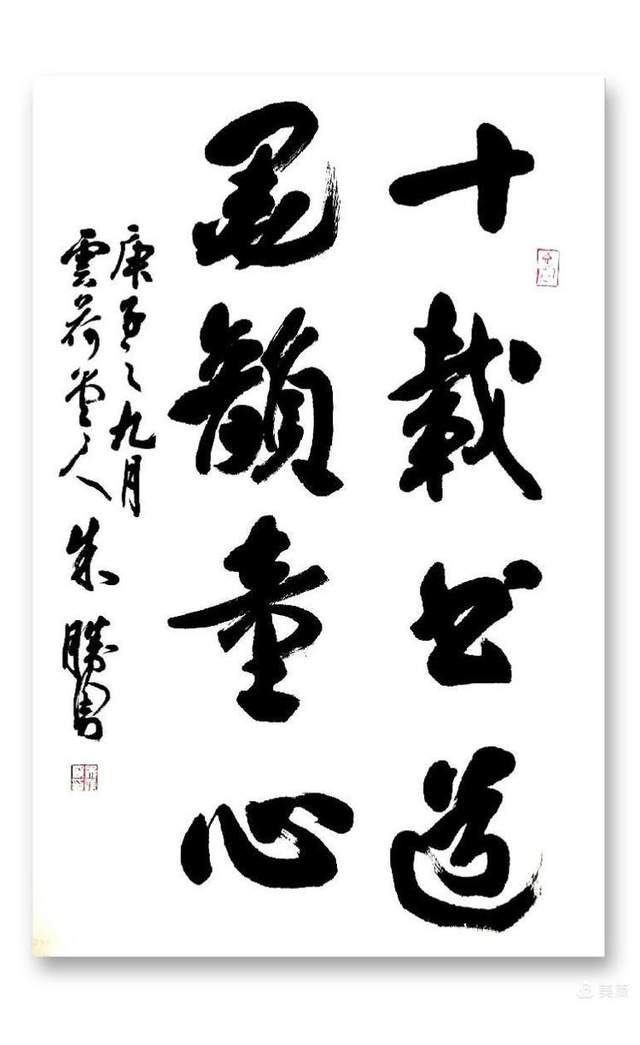 十載书道
墨韻童心
庚子之九月
雲荷堂人朱勝
美篇